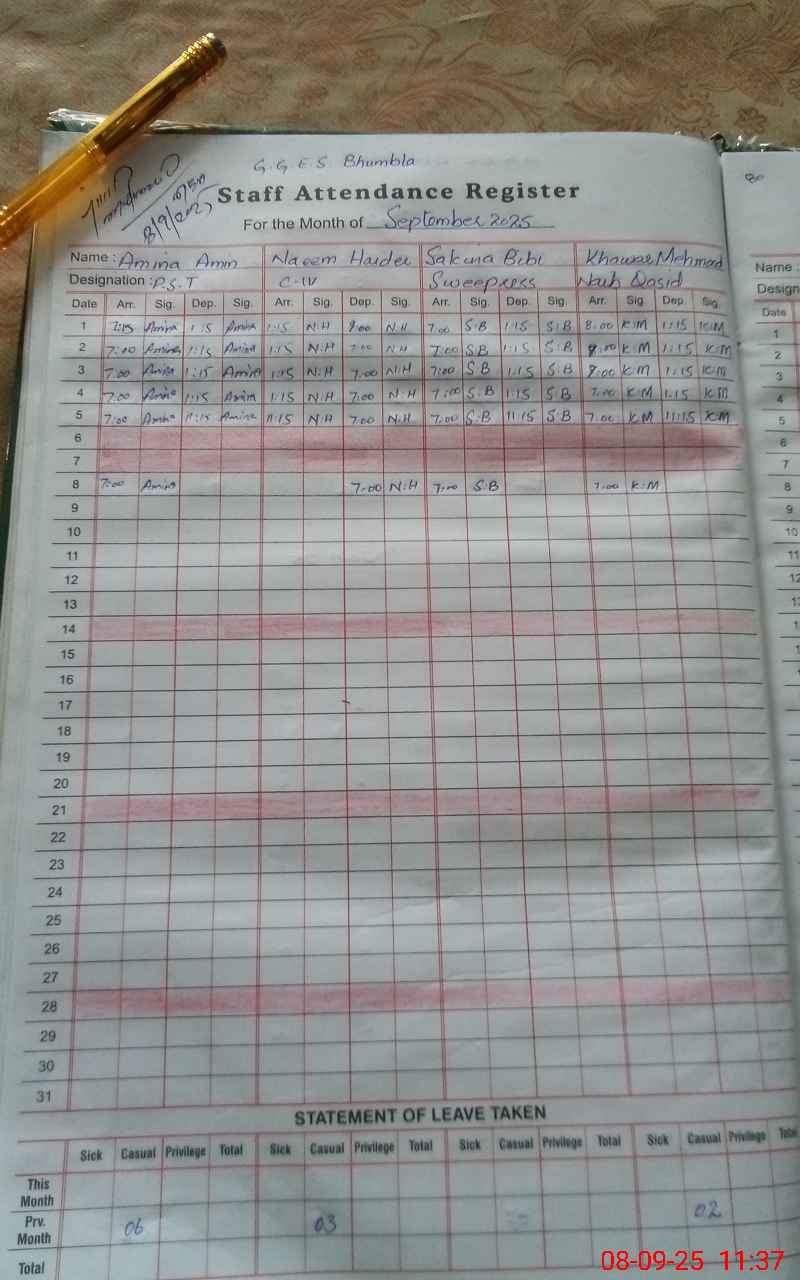 G.G.E.S Bhumbla
Staff Attendance Register
8/9/2025
For the Month of September 2025
Name : Amina Amin Naeem Haider Sakina Bibi Khawar Mehmood
Designation : P.S.T C-IV Sweepress Naib Qasid
Date Arr. Sig. Dep. Sig. Arr. Sig. Dep. Sig. Arr. Sig. Dep. Sig. Arr. Sig. Dep. Sig.
1 7:15 Amina 1:15 Amina 1:15 N.H 7:00 N.H 7:00 S.B 1:15 S.B 8:00 K.M 1:15 K.M
2 7:00 Amina 1:15 Amina 1:15 N.H 7:00 N.H 7:00 S.B 1:15 S.B 8:00 K.M 1:15 K.M
3 7:00 Amina 1:15 Amina 1:15 N.H 7:00 N.H 7:00 S.B 1:15 S.B 8:00 K.M 1:15 K.M
4 7:00 Amina 1:15 Amina 1:15 N.H 7:00 N.H 7:00 S.B 1:15 S.B 7:00 K.M 1:15 K.M
5 7:00 Amina 11:15 Amina 11:15 N.H 7:00 N.H 7:00 S.B 11:15 S.B 7:00 K.M 11:15 K.M
6
7
8 7:00 Amina 7:00 N.H 7:00 S.B 7:00 K.M
9
10
11
12
13
14
15
16
17
18
19
20
21
22
23
24
25
26
27
28
29
30
31
STATEMENT OF LEAVE TAKEN
Sick Casual Privilege Total Sick Casual Privilege Total Sick Casual Privilege Total Sick Casual Privilege Total
This Month
Prv. Month 06 03 02
Total
80
Name :
Design
Date
1
2
3
4
5
6
7
8
9
10
11
12
08-09-25 11:37